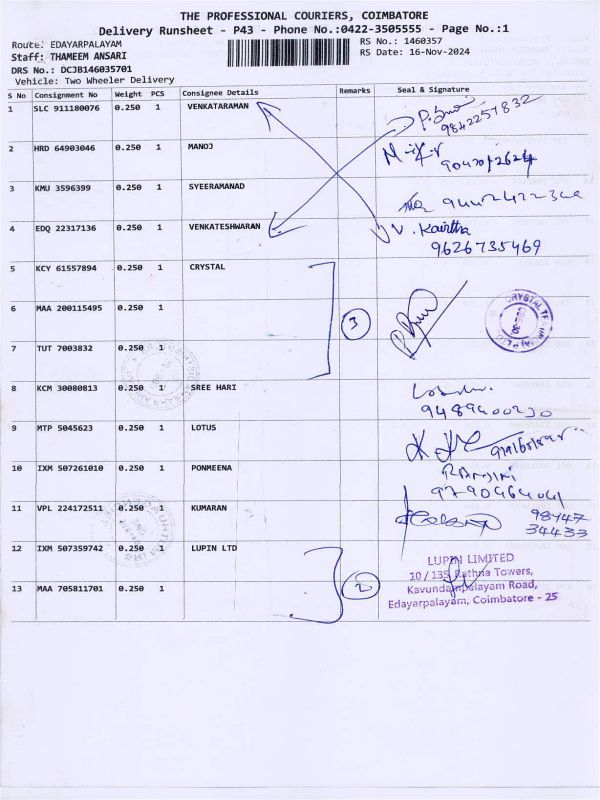 THE PROFESSIONAL COURIERS, COIMBATORE
Delivery Runsheet - P43 - Phone No.:0422-3505555 - Page No.:1
Route: EDAYARPALAYAM RS No.: 1460357
Staff: THAMEEM ANSARI RS Date: 16-Nov-2024
DRS No.: DCJB146035701
Vehicle: Two Wheeler Delivery
S No Consignment No Weight PCS Consignee Details Remarks Seal & Signature
1 SLC 911180076 0.250 1 VENKATARAMAN
9842257832
2 HRD 64903046 0.250 1 MANOJ
3 KMU 3596399 0.250 1 SYEERAMANAD
4 EDQ 22317136 0.250 1 VENKATESHWARAN V. Kavitha
9626735469
5 KCY 61557894 0.250 1 CRYSTAL
6 MAA 200115495 0.250 1
3
7 TUT 7003832 0.250 1
8 KCM 30080813 0.250 1 SREE HARI
9489400230
9 MTP 5045623 0.250 1 LOTUS
10 IXM 507261010 0.250 1 PONMEENA
9790464041
11 VPL 224172511 0.250 1 KUMARAN 98447
34433
12 IXM 507359742 0.250 1 LUPIN LTD
LUPIN LIMITED
10 / 135, Rathna Towers,
13 MAA 705811701 0.250 1 2 Kavundampalayam Road,
Edayarpalayam, Coimbatore - 25